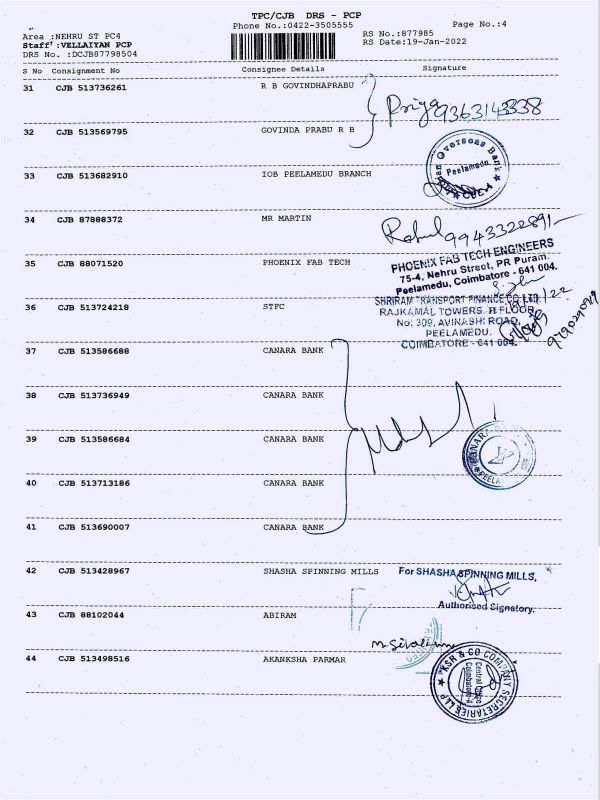 TPC/CJB DRS - PCP
Phone No.:0422-3505555
Page No.:4
Area :NEHRU ST PC4
Staff :VELLAIYAN PCP
DRS No. :DCJB87798504
RS No.:877985
RS Date:19-Jan-2022
S No Consignment No Consignee Details Signature
31 CJB 513736261 R B GOVINDHAPRABU
Priya 9363143338
32 CJB 513569795 GOVINDA PRABU R B
Overseas Bank
Peelamedu
33 CJB 513682910 IOB PEELAMEDU BRANCH
34 CJB 87888372 MR MARTIN
Rahul 9943322891
35 CJB 88071520 PHOENIX FAB TECH
PHOENIX FAB TECH ENGINEERS
75-4, Nehru Street, PR Puram.
Peelamedu, Coimbatore - 641 004.
36 CJB 513724218 STFC
SHRIRAM TRANSPORT FINANCE CO LTD.
RAJKAMAL TOWERS II FLOOR,
No: 309, AVINASHI ROAD,
PEELAMEDU.
COIMBATORE - 641 004.
37 CJB 513586688 CANARA BANK
38 CJB 513736949 CANARA BANK
39 CJB 513586684 CANARA BANK
CANARA
40 CJB 513713186 CANARA BANK
41 CJB 513690007 CANARA BANK
42 CJB 513428967 SHASHA SPINNING MILLS
For SHASHA SPINNING MILLS,
Authorised Signatory.
43 CJB 88102044 ABIRAM
44 CJB 513498516 AKANKSHA PARMAR
KSR & CO COMPANY SECRETARIES LLP
Central Office
Coimbatore-4